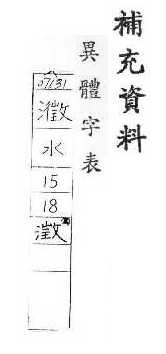 補充資料
異體字表
07131
瀓
水
15
18
澂